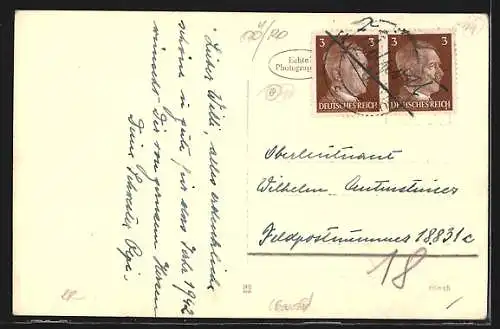 Lieber Willi, alles erdenkliche
schöne u gute für das Jahr 1942
wünscht Dir von ganzem Herzen
Deine Schwester Pepi.
Echte
Photograph
3 3
DEUTSCHES REICH DEUTSCHES REICH
Oberleutnant
Wilhelm
Feldpostnummer 18831c
18